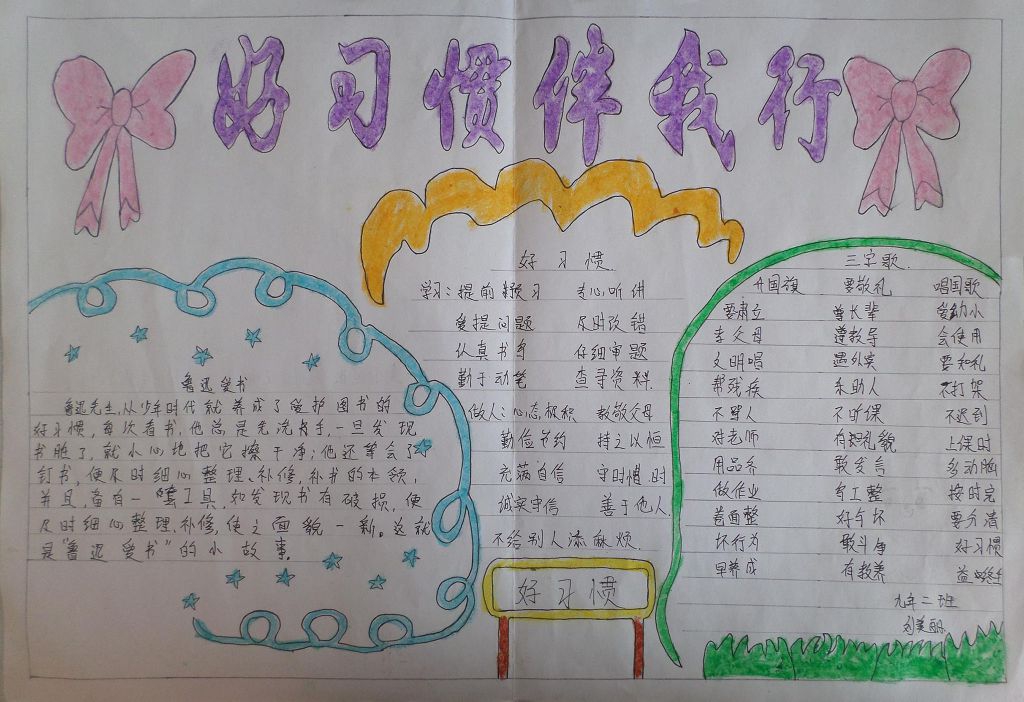 好习惯伴我行
鲁迅爱书
鲁迅先生,从少年时代就养成了爱护图书的
好习惯,每次看书,他总是先洗洗手,一旦发现
书脏了,就小心地把它擦干净;他还学会了
钉书,便及时细心整理、补修,补书的本领,
并且,备有一套工具,如发现书有破损,便
及时细心整理,补修,使之面貌一新。这就
是“鲁迅爱书”的小故事。
好习惯
学习:提前预习 专心听讲
爱提问题 及时改错
认真书写 仔细审题
勤于动笔 查寻资料
做人:心态极积 敬敬父母
勤俭节约 持之以恒
充满自信 守时惜时
诚实守信 善于他人
不给别人添麻烦
好习惯
三字歌
升国旗 要敬礼 唱国歌
要肃立 尊长辈 爱幼小
孝父母 尊教导 会使用
文明唱 遇外宾 要知礼
帮残疾 乐助人 不打架
不骂人 不旷课 不迟到
对老师 有礼貌 上课时
用品齐 敢发言 多动脑
做作业 写工整 按时完
卷面整 好与坏 要分清
坏行为 敢斗争 好习惯
早养成 有教养 益终生
九年二班
刘美丽